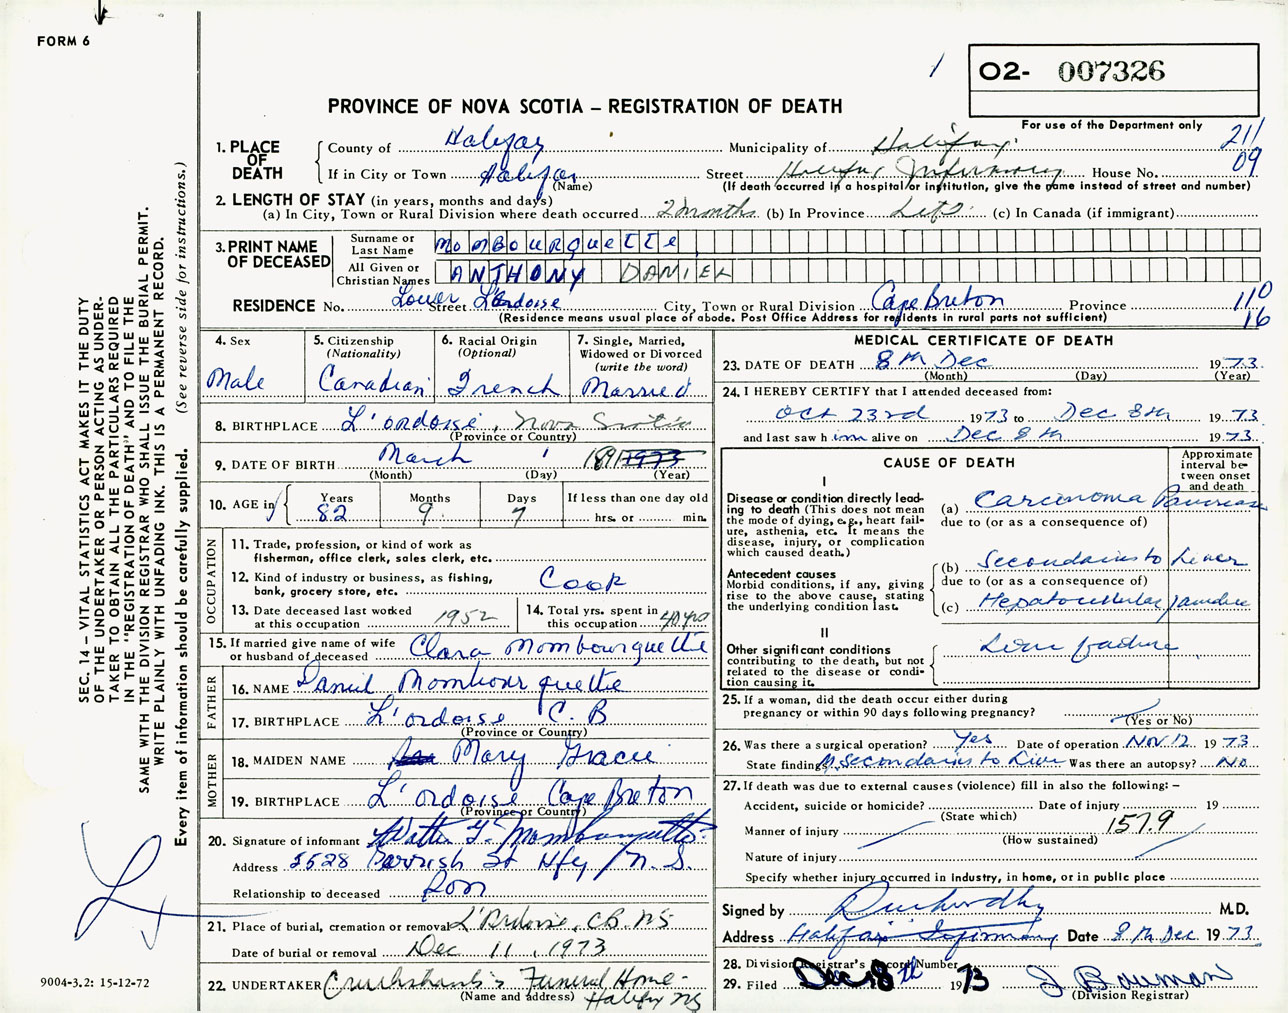 FORM 6
02- 007326
PROVINCE OF NOVA SCOTIA – REGISTRATION OF DEATH
For use of the Department only
211
09
1. PLACE OF DEATH
County of Halifax Municipality of Halifax
If in City or Town Halifax (Name) Street Halifax Infirmary House No.
(If death occurred in a hospital or institution, give the name instead of street and number)
2. LENGTH OF STAY (in years, months and days)
(a) In City, Town or Rural Division where death occurred 2 months (b) In Province Life (c) In Canada (if immigrant)
3. PRINT NAME OF DECEASED
Surname or Last Name MOMBOURQUETTE
All Given or Christian Names ANTHONY DANIEL
RESIDENCE No. Lower Street L'Ardoise City, Town or Rural Division Cape Breton Province 110
(Residence means usual place of abode. Post Office Address for residents in rural parts not sufficient) 16
4. Sex Male
5. Citizenship (Nationality) Canadian
6. Racial Origin (Optional) French
7. Single, Married, Widowed or Divorced (write the word) Married
8. BIRTHPLACE L'ordoise, Nova Scotia
(Province or Country)
9. DATE OF BIRTH March 1 1891 1973
(Month) (Day) (Year)
10. AGE in Years 82 Months 9 Days 7 If less than one day old hrs. or min.
OCCUPATION
11. Trade, profession, or kind of work as fisherman, office clerk, sales clerk, etc.
12. Kind of industry or business, as fishing, bank, grocery store, etc. Cook
13. Date deceased last worked at this occupation 1952
14. Total yrs. spent in this occupation 40 yrs
15. If married give name of wife or husband of deceased Clara Mombourquette
FATHER
16. NAME Daniel Mombourquette
17. BIRTHPLACE L'ordoise C.B
(Province or Country)
MOTHER
18. MAIDEN NAME Mary Gracie
19. BIRTHPLACE L'ordoise Cape Breton
(Province or Country)
20. Signature of informant Walter F. Mombourquette
Address 5528 St Hfx N.S.
Relationship to deceased Son
21. Place of burial, cremation or removal L'Ardoise, C.B. NS
Date of burial or removal Dec 11, 1973
22. UNDERTAKER Cruikshank's Funeral Home -
(Name and address) Halifax NS
MEDICAL CERTIFICATE OF DEATH
23. DATE OF DEATH 8th Dec 1973
(Month) (Day) (Year)
24. I HEREBY CERTIFY that I attended deceased from:
Oct 23rd 1973 to Dec 8th 1973
and last saw him alive on Dec 8th 1973
CAUSE OF DEATH
Approximate interval between onset and death
I
Disease or condition directly leading to death (This does not mean the mode of dying, e.g., heart failure, asthenia, etc. It means the disease, injury, or complication which caused death.)
(a) Carcinoma Pancreas
due to (or as a consequence of)
Antecedent causes
Morbid conditions, if any, giving rise to the above cause, stating the underlying condition last.
(b) Secondaries to Liver
due to (or as a consequence of)
(c) Hepatocellular jaundice
II
Other significant conditions contributing to the death, but not related to the disease or condition causing it.
Liver failure
25. If a woman, did the death occur either during pregnancy or within 90 days following pregnancy?
(Yes or No)
26. Was there a surgical operation? Yes Date of operation NOV 12 1973
State findings Secondaries to Liver Was there an autopsy? NO
27. If death was due to external causes (violence) fill in also the following: –
Accident, suicide or homicide? Date of injury 19
(State which) 157.9
Manner of injury
(How sustained)
Nature of injury
Specify whether injury occurred in industry, in home, or in public place
Signed by M.D.
Address Halifax Infirmary Date 8th Dec 1973
28. Division Registrar's Record Number
29. Filed Dec 18th 1973 J Bauman
(Division Registrar)
SEC. 14 – VITAL STATISTICS ACT MAKES IT THE DUTY
OF THE UNDERTAKER OR PERSON ACTING AS UNDER-
TAKER TO OBTAIN ALL THE PARTICULARS REQUIRED
IN THE "REGISTRATION OF DEATH" AND TO FILE THE
SAME WITH THE DIVISION REGISTRAR WHO SHALL ISSUE THE BURIAL PERMIT.
WRITE PLAINLY WITH UNFADING INK. THIS IS A PERMANENT RECORD.
Every item of information should be carefully supplied. (See reverse side for instructions.)
9004-3.2: 15-12-72